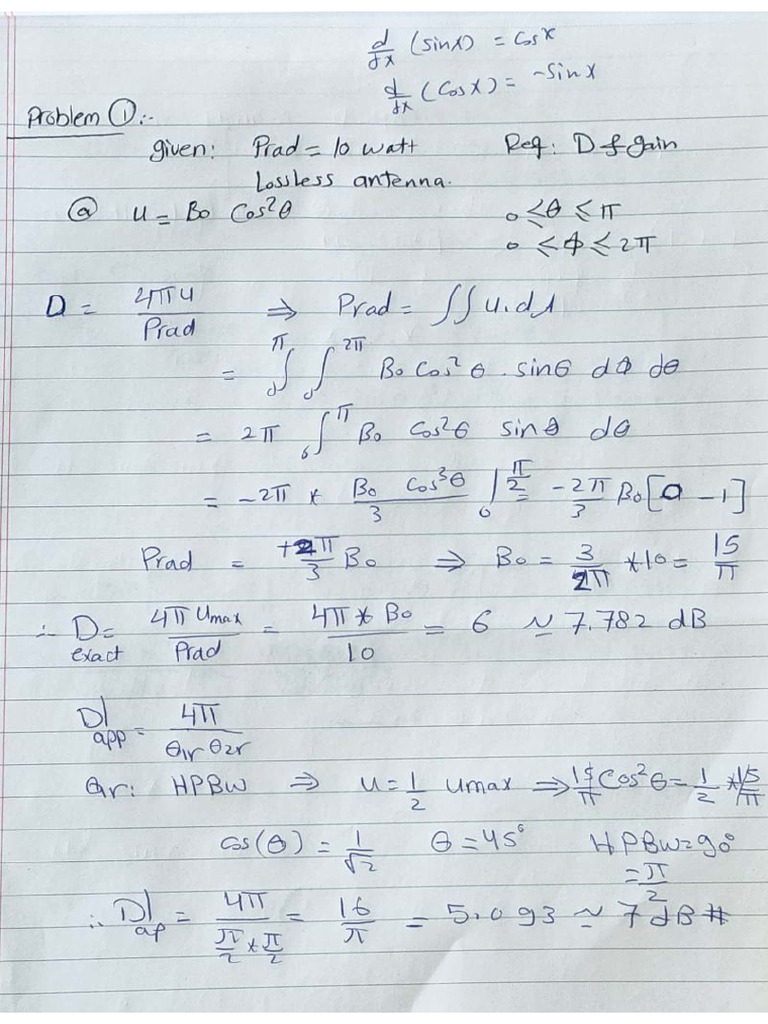 d/dx (sinx) = cosx
d/dx (cosx) = -sinx
Problem ①:-
given: Prad = 10 watt Req: D & gain
Lossless antenna.
ⓐ u = B₀ Cos²θ 0 ≤ θ ≤ π
0 ≤ φ ≤ 2π
D = 4πu/Prad ⇒ Prad = ∫∫ u.dΩ
= ∫₀^π ∫₀^2π B₀ Cos²θ . sinθ dφ dθ
= 2π ∫₀^π B₀ Cos²θ sinθ dθ
= -2π * B₀ Cos³θ/3 |₀^π/2 = -2π/3 B₀[0 - 1]
Prad = +2π/3 B₀ ⇒ B₀ = 3/2π * 10 = 15/π
∴ D exact = 4π Umax/Prad = 4π * B₀/10 = 6 ≃ 7.782 dB
D|app = 4π/θ₁r θ₂r
θ₁r: HPBW ⇒ u = 1/2 Umax ⇒ 15/π Cos²θ = 1/2 * 15/π
cos(θ) = 1/√2 θ = 45° HPBW = 90°
= π/2
∴ D|ap = 4π/(π/2 * π/2) = 16/π = 5.093 ≃ 7 dB #